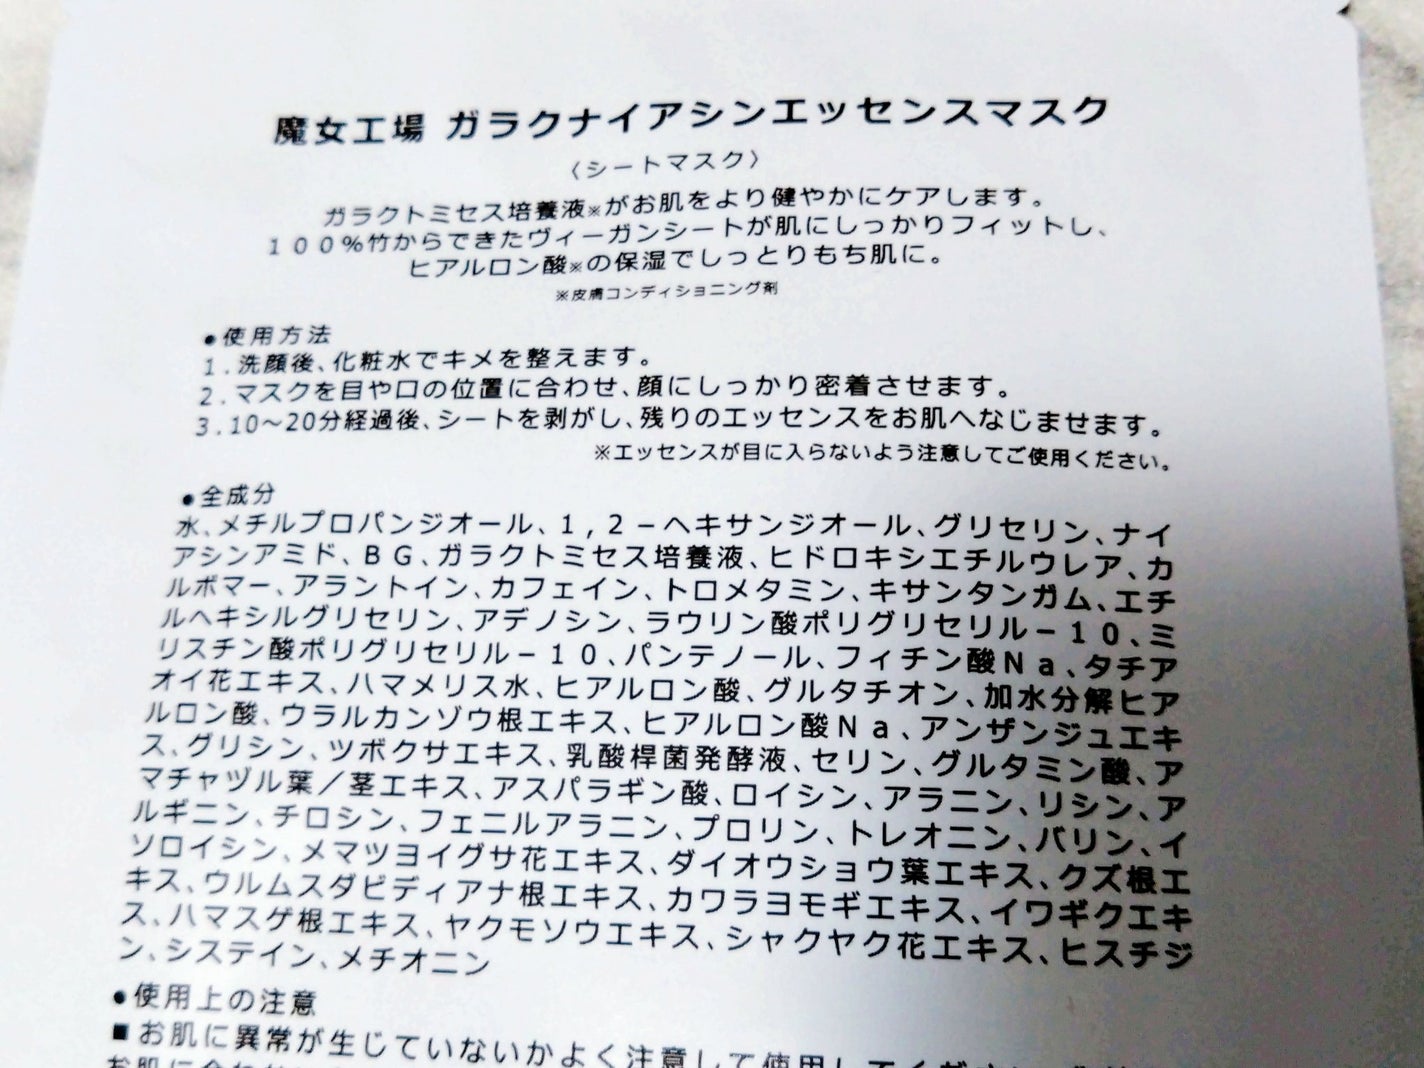 魔女工場 ガラクナイアシンエッセンスマスク
〈シートマスク〉
ガラクトミセス培養液※がお肌をより健やかにケアします。
１００％竹からできたヴィーガンシートが肌にしっかりフィットし、
ヒアルロン酸※の保湿でしっとりもち肌に。
※皮膚コンディショニング剤
●使用方法
1.洗顔後、化粧水でキメを整えます。
2.マスクを目や口の位置に合わせ、顔にしっかり密着させます。
3.10～20分経過後、シートを剥がし、残りのエッセンスをお肌へなじませます。
※エッセンスが目に入らないよう注意してご使用ください。
●全成分
水、メチルプロパンジオール、１,２－ヘキサンジオール、グリセリン、ナイ
アシンアミド、ＢＧ、ガラクトミセス培養液、ヒドロキシエチルウレア、カ
ルボマー、アラントイン、カフェイン、トロメタミン、キサンタンガム、エチ
ルヘキシルグリセリン、アデノシン、ラウリン酸ポリグリセリル－１０、ミ
リスチン酸ポリグリセリル－１０、パンテノール、フィチン酸Ｎａ、タチア
オイ花エキス、ハマメリス水、ヒアルロン酸、グルタチオン、加水分解ヒア
ルロン酸、ウラルカンゾウ根エキス、ヒアルロン酸Ｎａ、アンザンジュエキ
ス、グリシン、ツボクサエキス、乳酸桿菌発酵液、セリン、グルタミン酸、ア
マチャヅル葉／茎エキス、アスパラギン酸、ロイシン、アラニン、リシン、ア
ルギニン、チロシン、フェニルアラニン、プロリン、トレオニン、バリン、イ
ソロイシン、メマツヨイグサ花エキス、ダイオウショウ葉エキス、クズ根エ
キス、ウルムスダビディアナ根エキス、カワラヨモギエキス、イワギクエキ
ス、ハマスゲ根エキス、ヤクモソウエキス、シャクヤク花エキス、ヒスチジ
ン、システイン、メチオニン
●使用上の注意
■お肌に異常が生じていないかよく注意して使用してください。